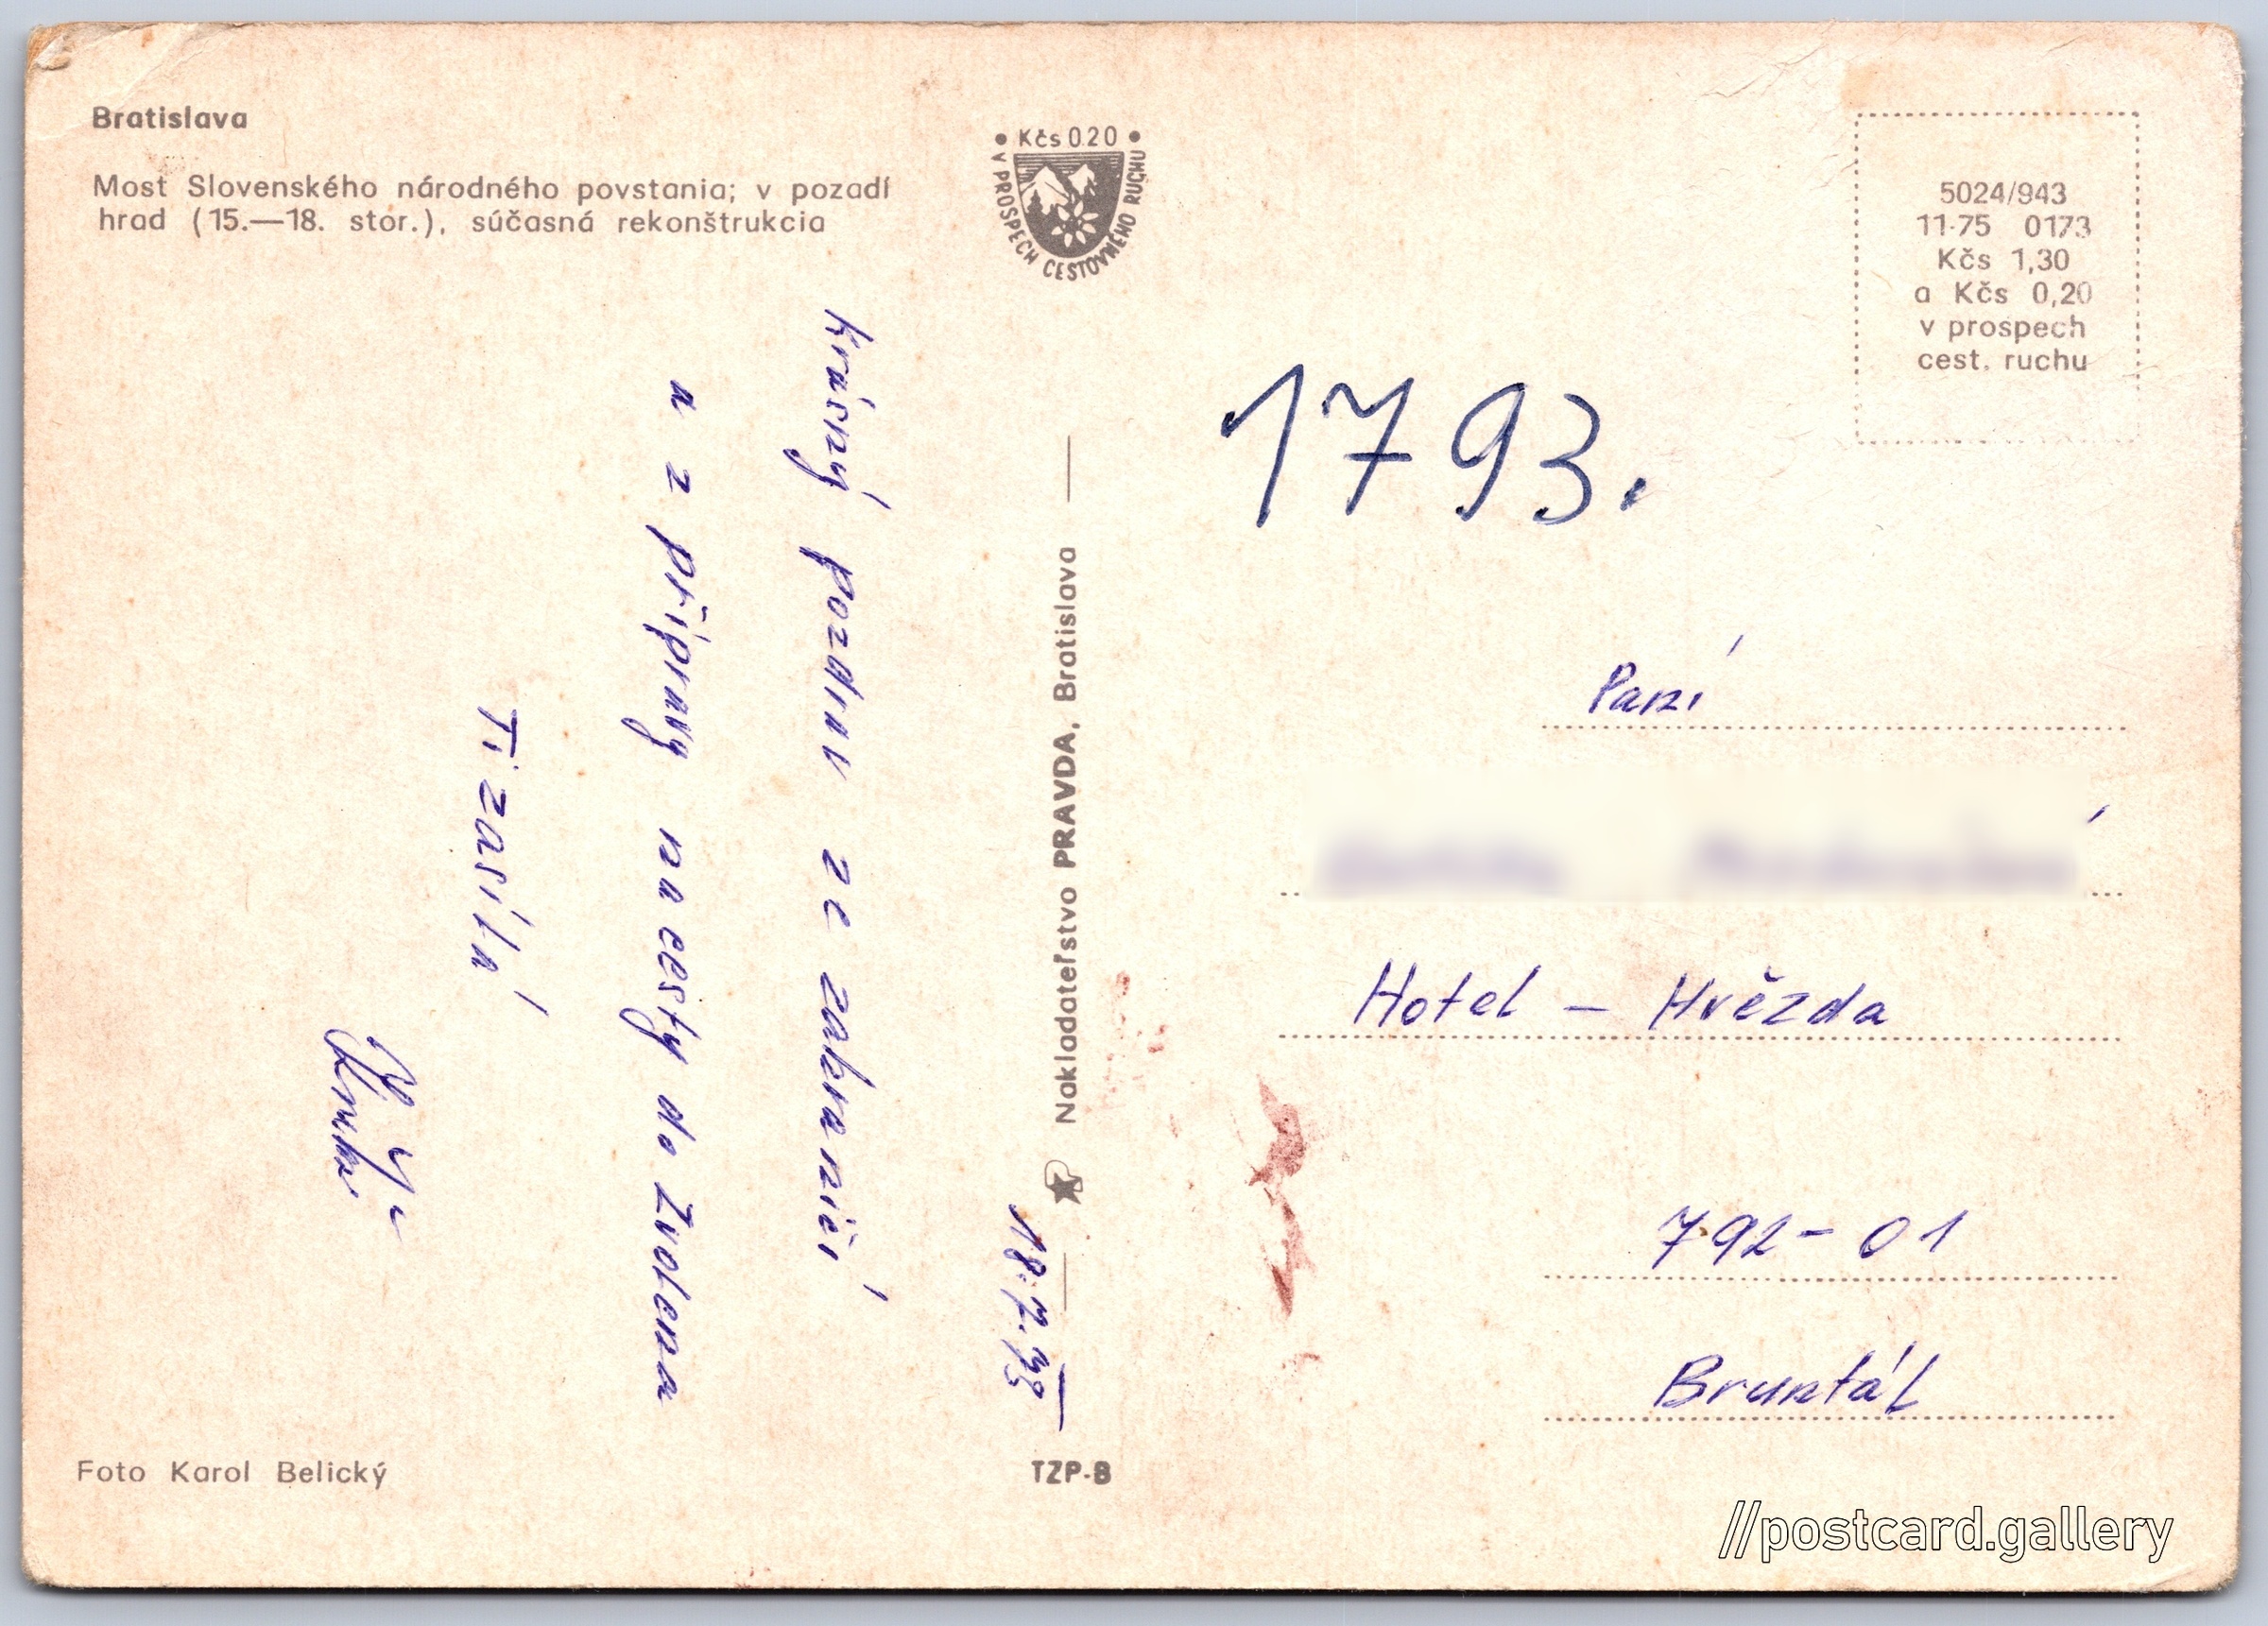 Bratislava
Most Slovenského národného povstania; v pozadí
hrad (15.—18. stor.), súčasná rekonštrukcia
• Kčs 0.20 •
V PROSPECH CESTOVNÉHO RUCHU
5024/943
11-75 0173
Kčs 1,30
a Kčs 0,20
v prospech
cest. ruchu
1793.
18.7.
krásný pozdrav ze zahraničí
a z přípravy na cesty do Zvolena
Ti zasílá
Nakladateľstvo PRAVDA, Bratislava
Paní
Hotel - Hvězda
792-01
Bruntál
Foto Karol Belický
TZP-8
//postcard.gallery